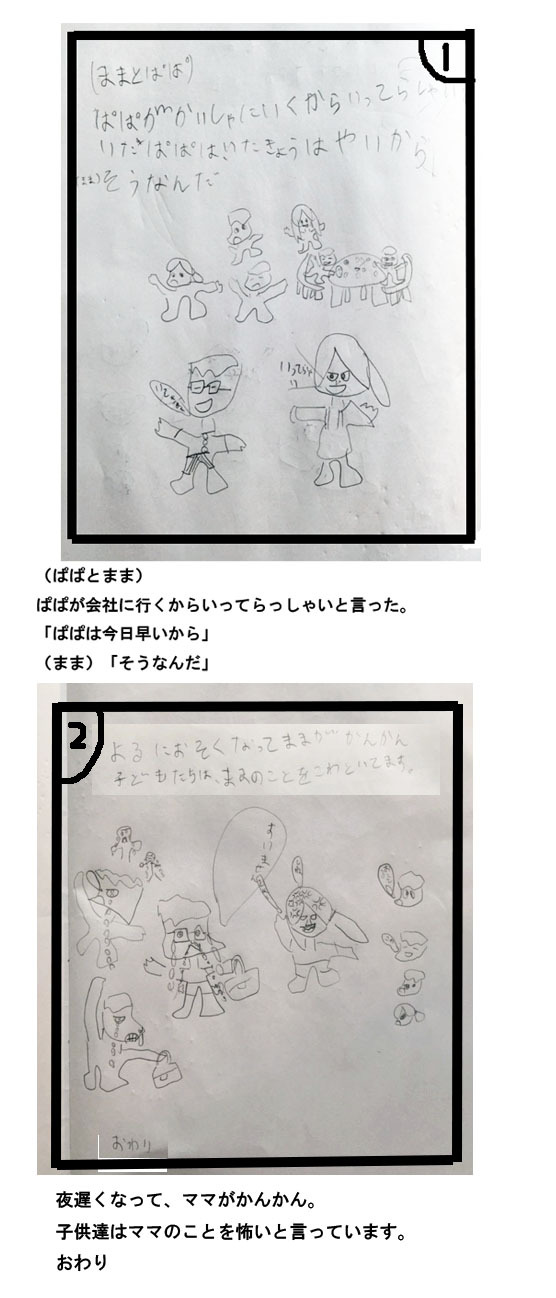 1
(ままとぱぱ)
ぱぱがかいしゃにいくからいってらっしゃい
ぱぱは きょうはやいから
(まま)そうなんだ
いってらっしゃい
(ぱぱとまま)
ぱぱが会社に行くからいってらっしゃいと言った。
「ぱぱは今日早いから」
(まま)「そうなんだ」
2
よるにおそくなってままがかんかん
子どもたちは、ままのことをこわいといてます。
すいません
おわり
夜遅くなって、ママがかんかん。
子供達はママのことを怖いと言っています。
おわり